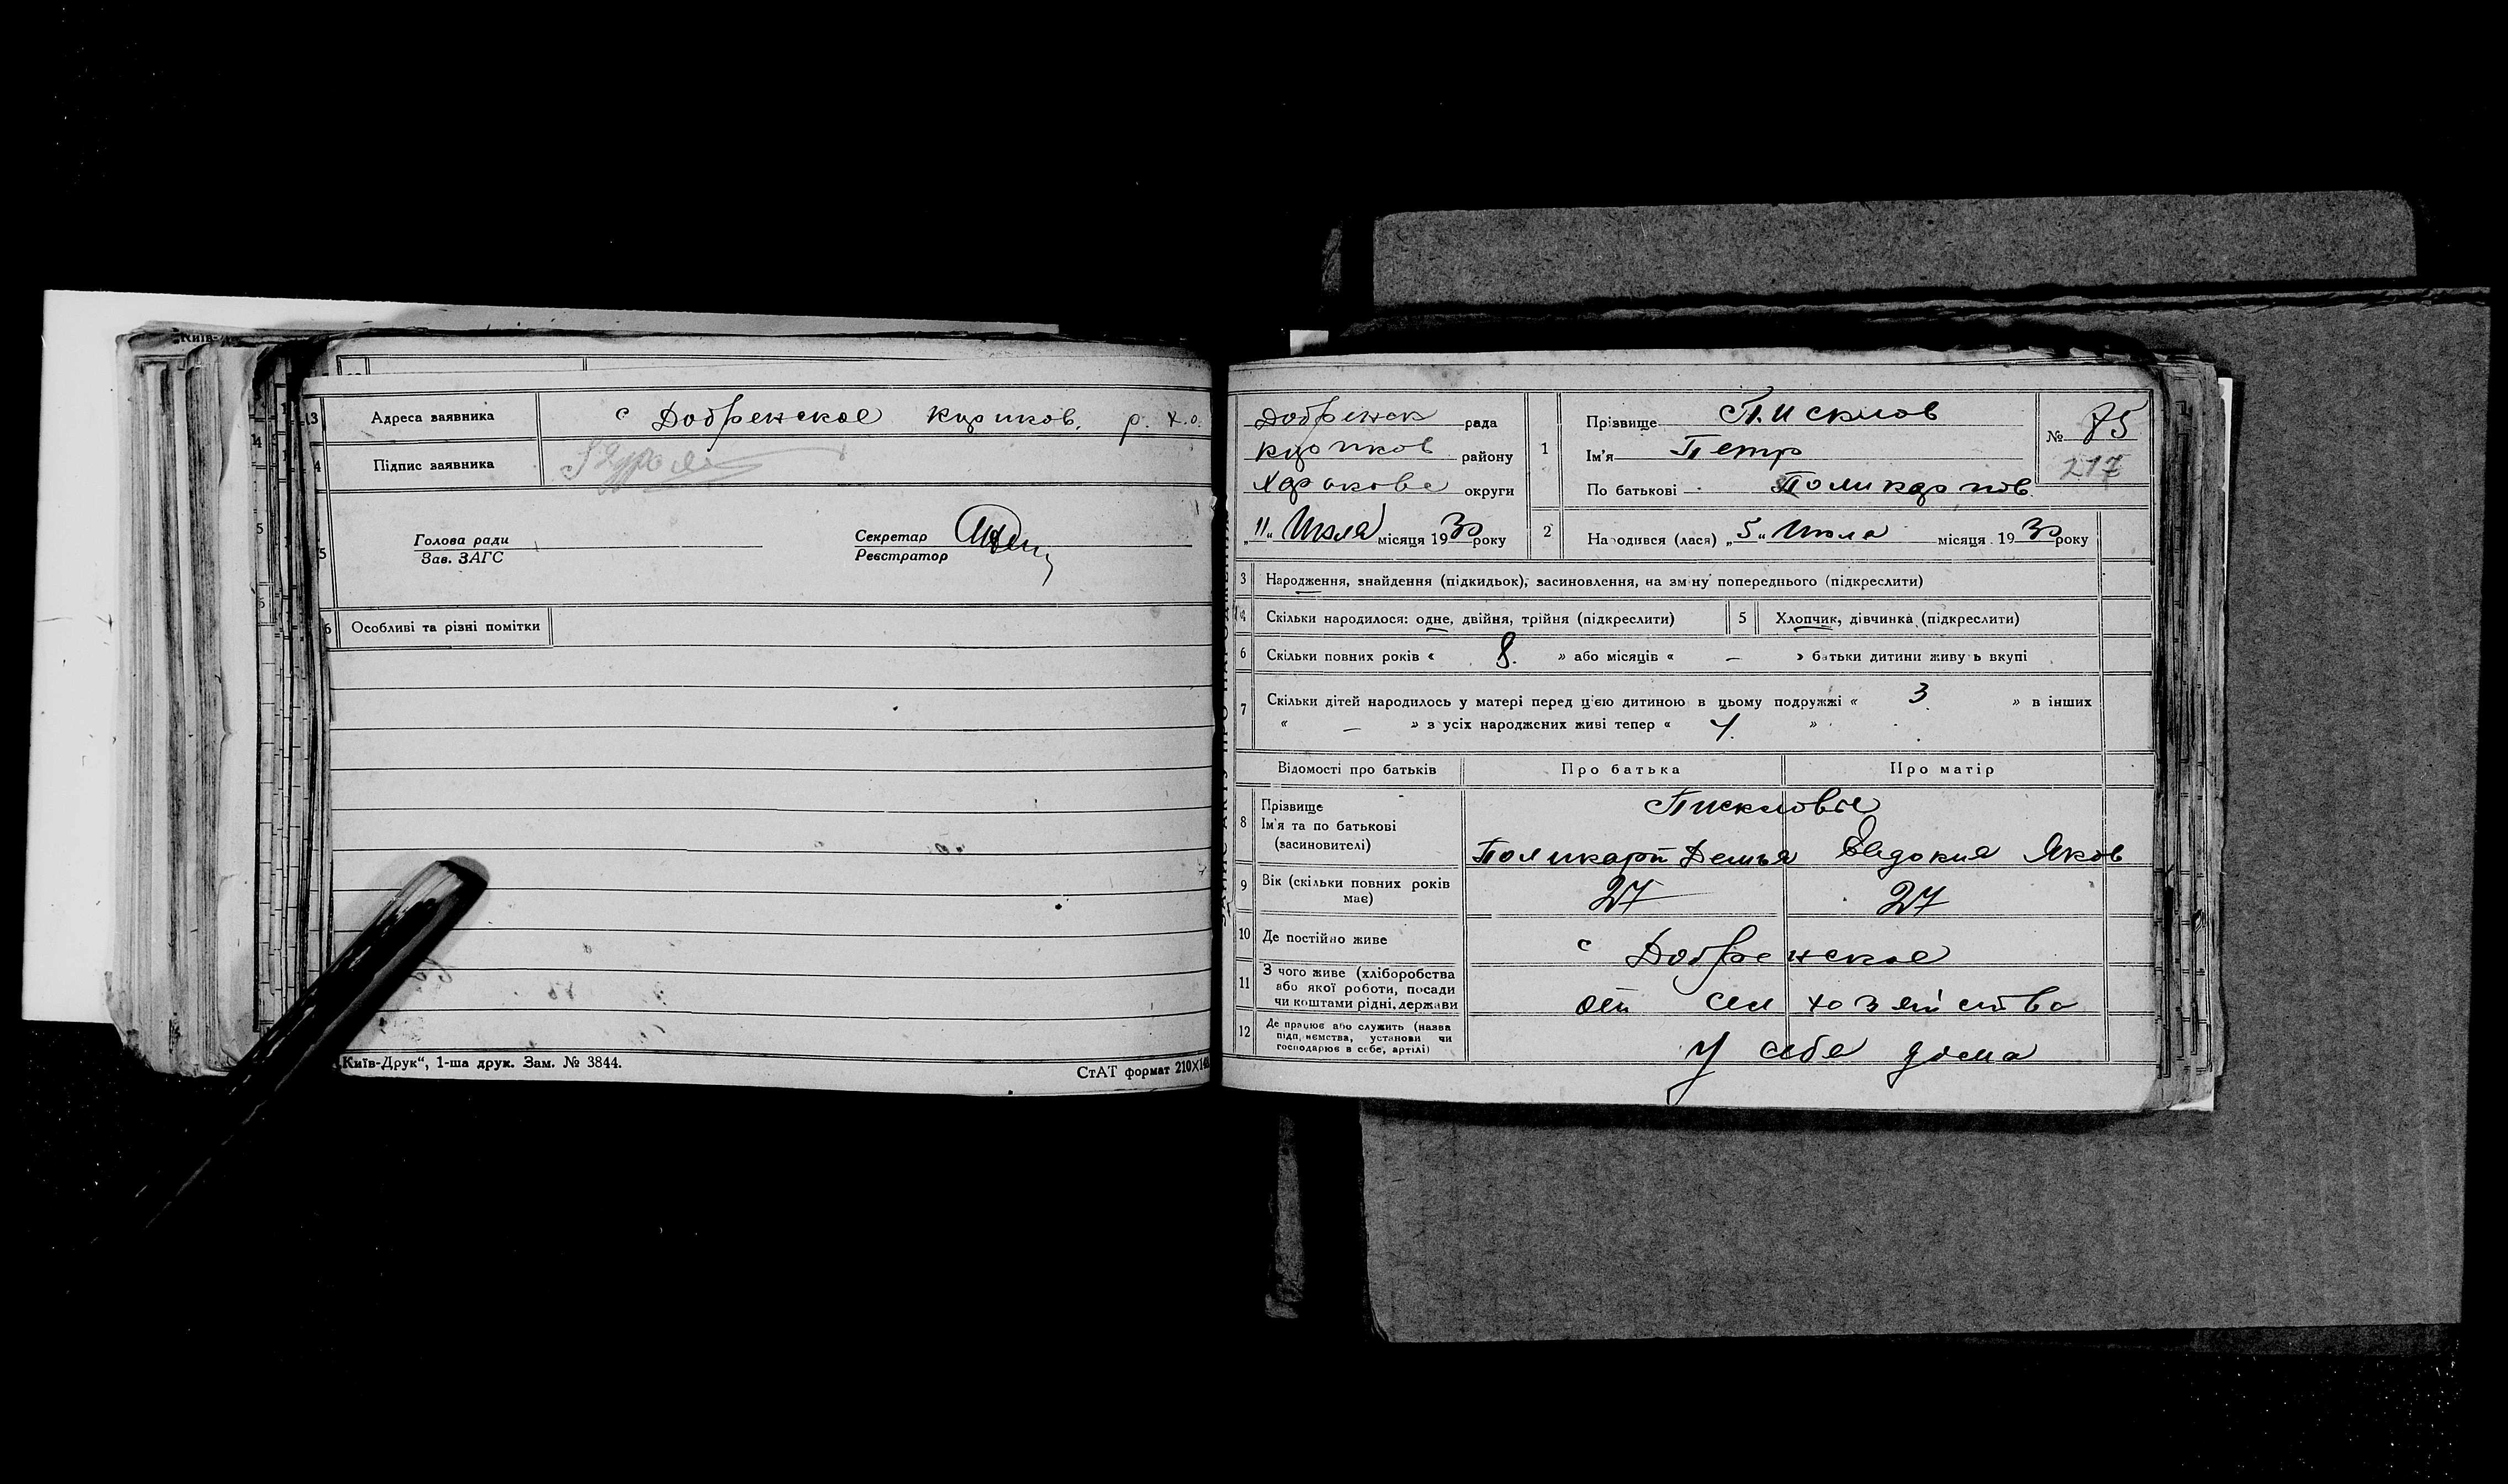 13 Адреса заявника с Добренское Куриков. р. Х.о.
Підпис заявника
Голова ради
Зав. ЗАГС
Секретар
Реєстратор
Особливі та різні помітки
„Київ-Друк“, 1-ша друк. Зам. № 3844.
СтАТ формат 210Х148
Добренск рада
района району
Харькове округи
„11“ Июля місяця 1930 року
1 Прізвище
Ім'я Петр
По батькові Поликарпов.
№ 85
217
2 Народився (лася) „5“ Июля місяця 1930 року
3 Народження, знайдення (підкидьок), засиновлення, на зміну попереднього (підкреслити)
4 Скільки народилося: одне, двійня, трійня (підкреслити)
5 Хлопчик, дівчинка (підкреслити)
6 Скільки повних років « 8. » або місяців « — » батьки дитини живуть вкупі
7 Скільки дітей народилось у матері перед ц'єю дитиною в цьому подружжі « 3 » в інших
« — » з усіх народжених живі тепер « 4. »
Відомості про батьків Про батька Про матір
8 Прізвище
Ім'я та по батькові
(засиновителі)
Поликарп Демья Евдокия Яков
9 Вік (скільки повних років має) 27 27
10 Де постійно живе с Добренское
11 З чого живе (хліборобства
або якої роботи, посади
чи коштами рідні, держави
от сел хозяйства
12 Де працює або служить (назва
підприємства, установи чи
господарює в себе, артілі)
у себе дома